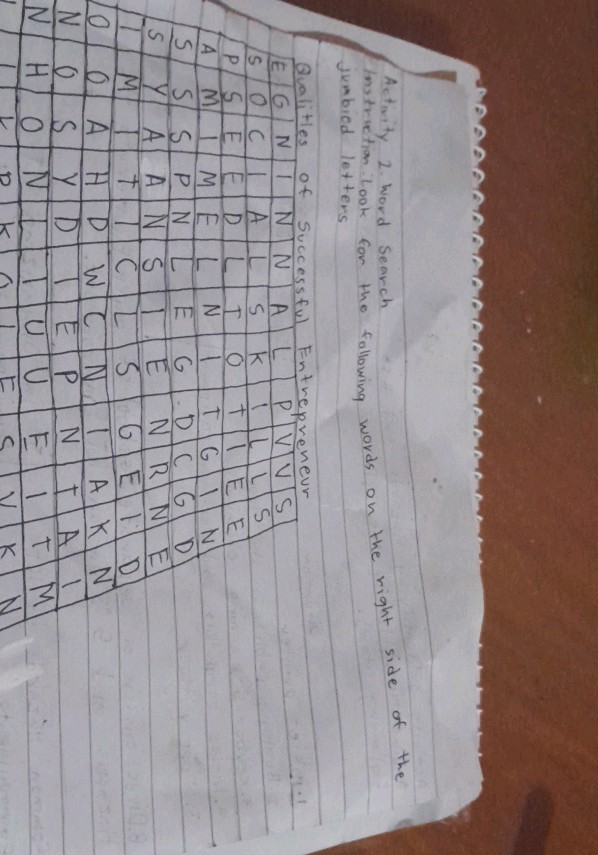 Activity 2. Word Search
Instruction. Look for the following words on the right side of the
jumbled letters
Qualities of Successful Entrepreneur
E G N I N N A L P V V S
S O C I A L S K I L L S
P S E E D L T O T I E E
A M I M E L N I T G I N
S S S P N L E G D C G D
S Y A A N S I E N R N E
I M I T I C L S G E I D
O O A H D W C N I A K N
N O S Y D I E P N T A I
N H O N I I U U E I T M